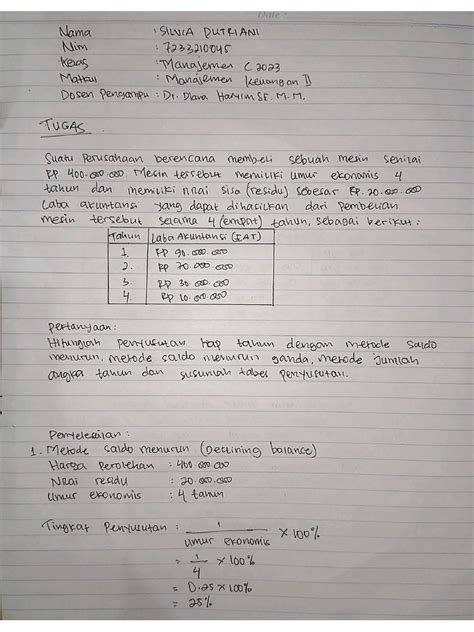 Date :
Nama : SILVIA PUTRIANI
Nim : 7233210045
Kelas : Manajemen C 2023
Matkul : Manajemen Keuangan II
Dosen Pengampu : Dr. Diana Hasyim SE. M.M.
TUGAS
Suatu Perusahaan berencana membeli sebuah mesin senilai
RP 400.000.000 Mesin tersebut memiliki umur ekonomis 4
tahun dan memiliki nilai sisa (residu) sebesar Rp. 20.000.000
Laba akuntansi yang dapat dihasilkan dari pembelian
mesin tersebut selama 4 (empat) tahun, sebagai berikut :
Tahun Laba Akuntansi (EAT)
1. RP 90.000.000
2. RP 70.000.000
3. RP 30.000.000
4. RP 10.000.000
Pertanyaan :
Hitunglah penyusutan tiap tahun dengan metode saldo
menurun, metode saldo menurun ganda, metode jumlah
angka tahun dan susunlah tabel penyusutan.
Penyelesaian :
1. Metode saldo menurun (Declining balance)
Harga Perolehan : 400 000 000
Nilai residu : 20 000.000
Umur ekonomis : 4 tahun
Tingkat Penyusutan : 1 / umur ekonomis × 100%
= 1/4 × 100%
= 0.25 × 100%
= 25%